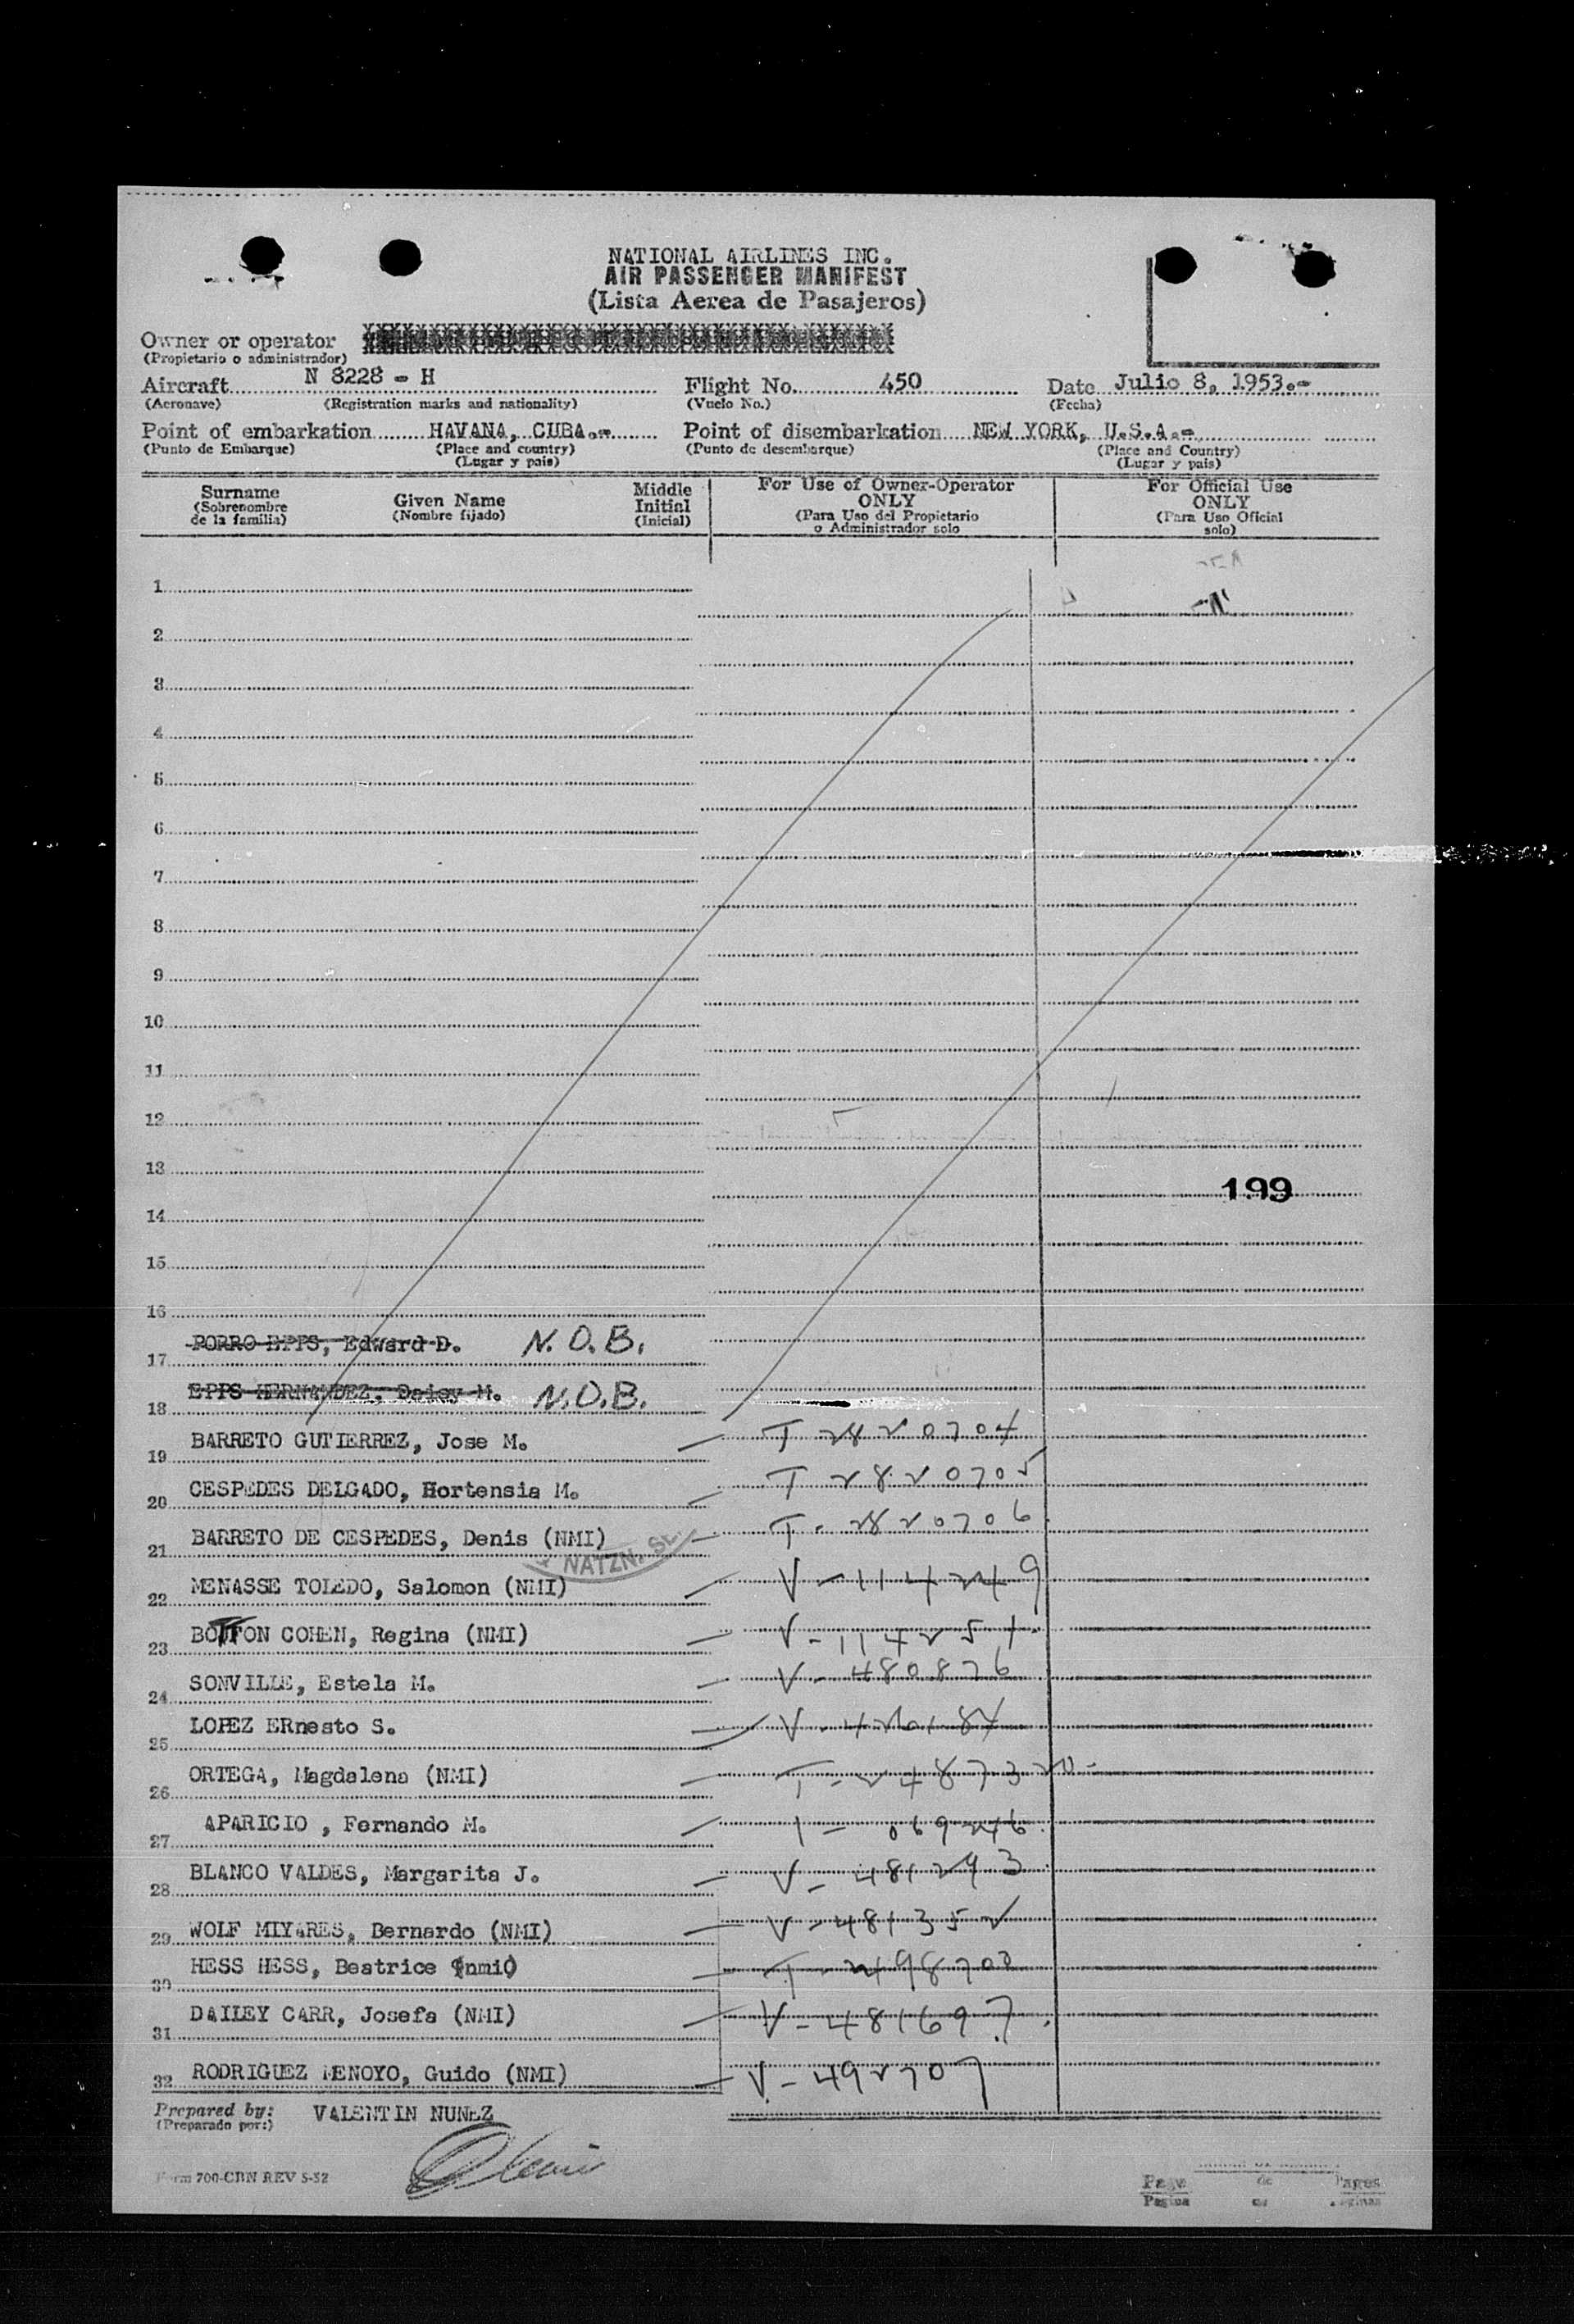 NATIONAL AIRLINES INC.
AIR PASSENGER MANIFEST
(Lista Aerea de Pasajeros)
Owner or operator
(Propietario o administrador)
Aircraft N 8228 - H Flight No. 450 Date Julio 8, 1953.-
(Aeronave) (Registration marks and nationality) (Vuelo No.) (Fecha)
Point of embarkation HAVANA, CUBA.- Point of disembarkation NEW YORK, U.S.A.-
(Punto de Embarque) (Place and country) (Punto de desembarque) (Place and Country)
(Lugar y pais) (Lugar y pais)
Surname Given Name Middle Initial For Use of Owner-Operator ONLY For Official Use ONLY
(Sobrenombre de la familia) (Nombre fijado) (Inicial) (Para Uso del Propietario o Administrador solo (Para Uso Oficial solo)
1
2
3
4
5
6
7
8
9
10
11
12
13
199
14
15
16
17 PORRO EPPS, Edward D. N.O.B.
18 EPPS HERNANDEZ, Daisy M. N.O.B.
19 BARRETO GUTIERREZ, Jose M. T 2820704
20 CESPEDES DELGADO, Hortensia M. T 2820705
21 BARRETO DE CESPEDES, Denis (NMI) T- 2820706
NATZN. SE
22 MENASSE TOLEDO, Salomon (NMI) V-114249
23 BOTTON COHEN, Regina (NMI) V-114251
24 SONVILLE, Estela M. V-480876
25 LOPEZ ERnesto S.
26 ORTEGA, Magdalena (NMI) T-2487320-
27 APARICIO , Fernando M. 1- 069246
28 BLANCO VALDES, Margarita J. V-481293
29 WOLF MIYARES, Bernardo (NMI) V-481352
30 HESS HESS, Beatrice (nmi) T-2498700
31 DAILEY CARR, Josefa (NMI) V-481697
32 RODRIGUEZ MENOYO, Guido (NMI) V-492707
Prepared by: VALENTIN NUNEZ
(Preparado por:)
Form 700-CBN REV 5-52
Page de Pages
Pagina de Paginas